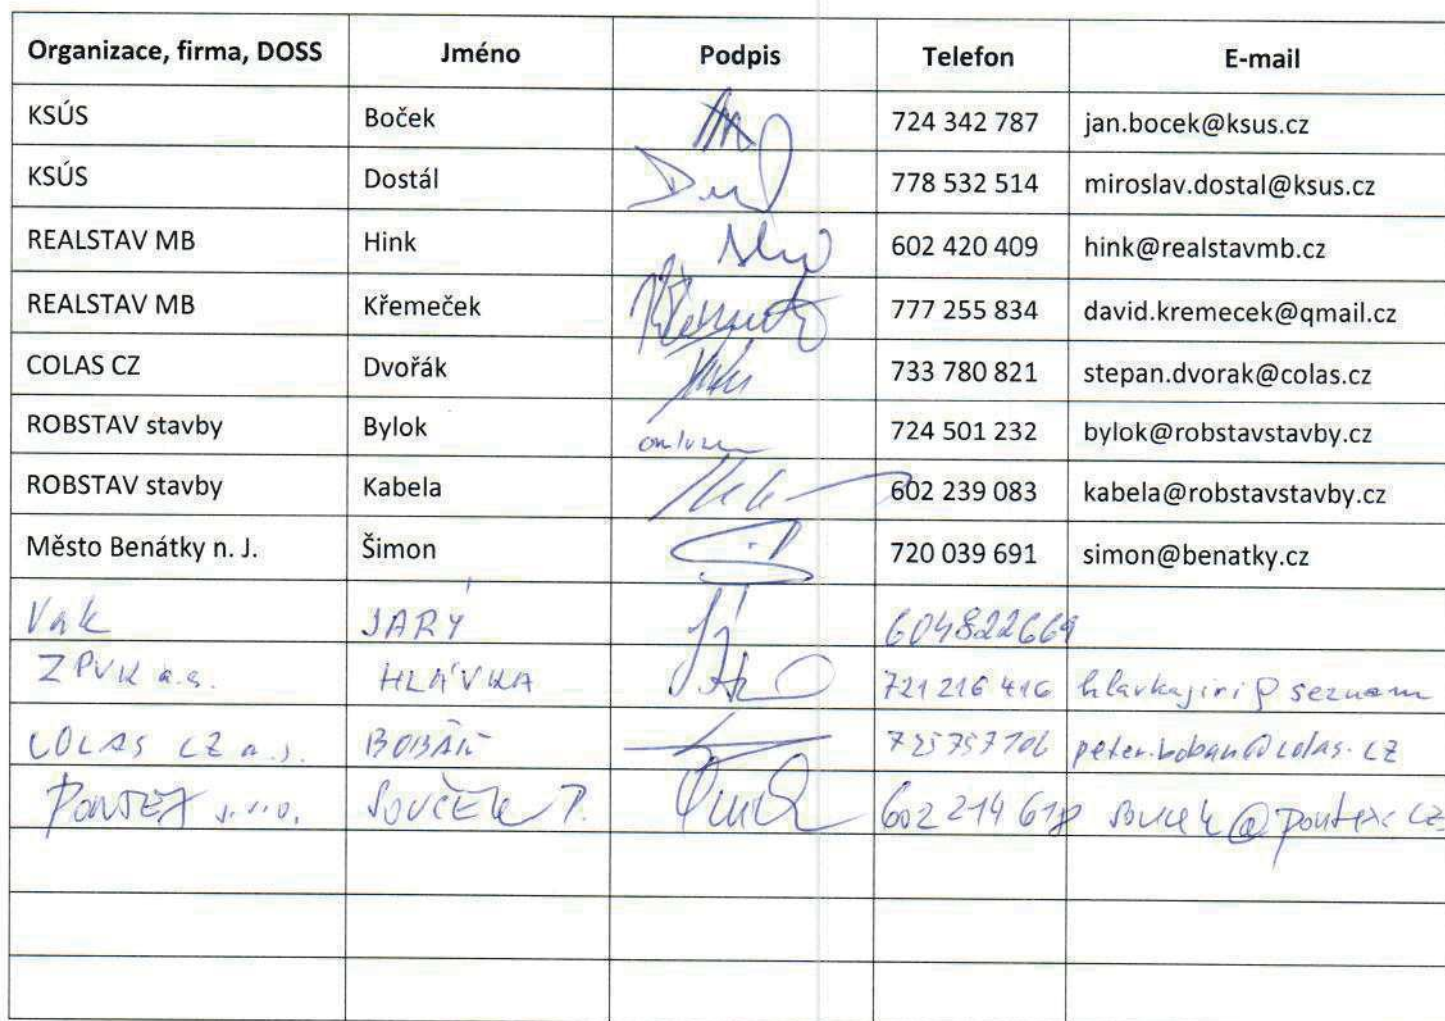 Organizace, firma, DOSS Jméno Podpis Telefon E-mail
KSÚS Boček 724 342 787 jan.bocek@ksus.cz
KSÚS Dostál 778 532 514 miroslav.dostal@ksus.cz
REALSTAV MB Hink 602 420 409 hink@realstavmb.cz
REALSTAV MB Křemeček 777 255 834 david.kremecek@qmail.cz
COLAS CZ Dvořák 733 780 821 stepan.dvorak@colas.cz
ROBSTAV stavby Bylok 724 501 232 bylok@robstavstavby.cz
ROBSTAV stavby Kabela 602 239 083 kabela@robstavstavby.cz
Město Benátky n. J. Šimon 720 039 691 simon@benatky.cz
Vak JARÝ 604822669
ZPVK a.s. HLÁVKA 721 216 416 hlavkajiri@seznam
COLAS CZ a.s. BOBÁŇ peter.boban@colas.cz
PONTEX s.r.o. SOUČEK P. 602 214 618 soucek@pontex.cz